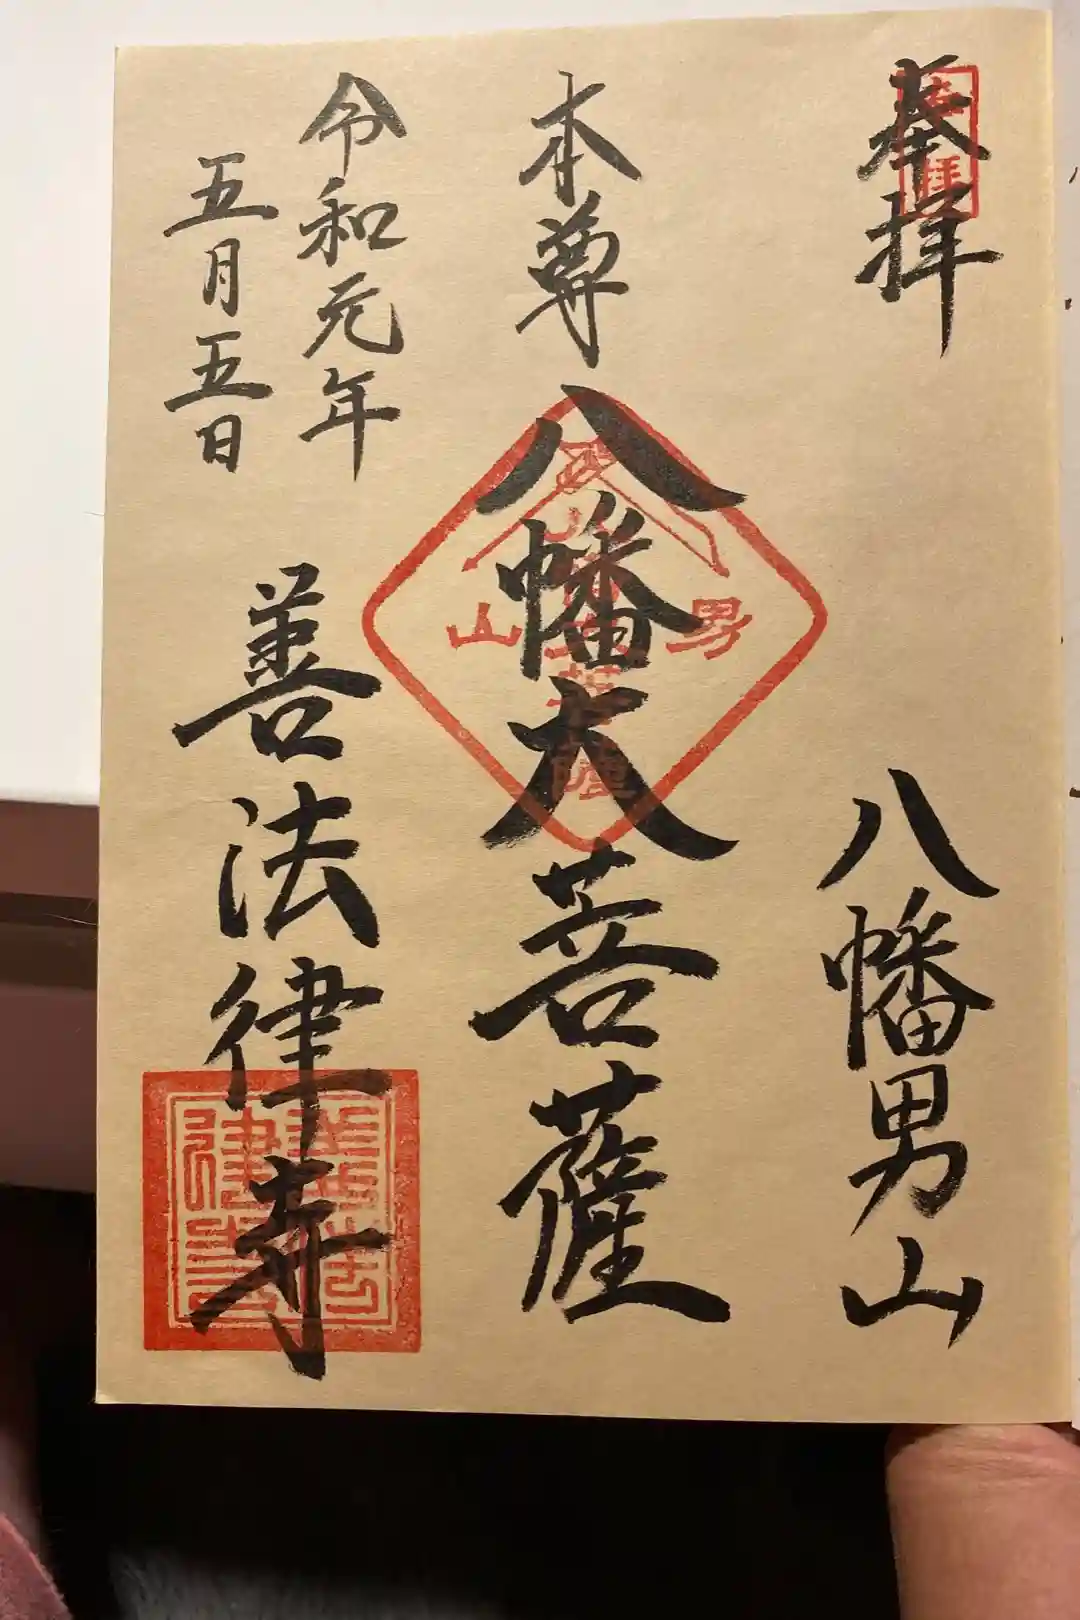 奉拝
八幡男山
本尊
八幡大菩薩
令和元年
五月五日
善法律寺
奉拝
男山
善法律寺